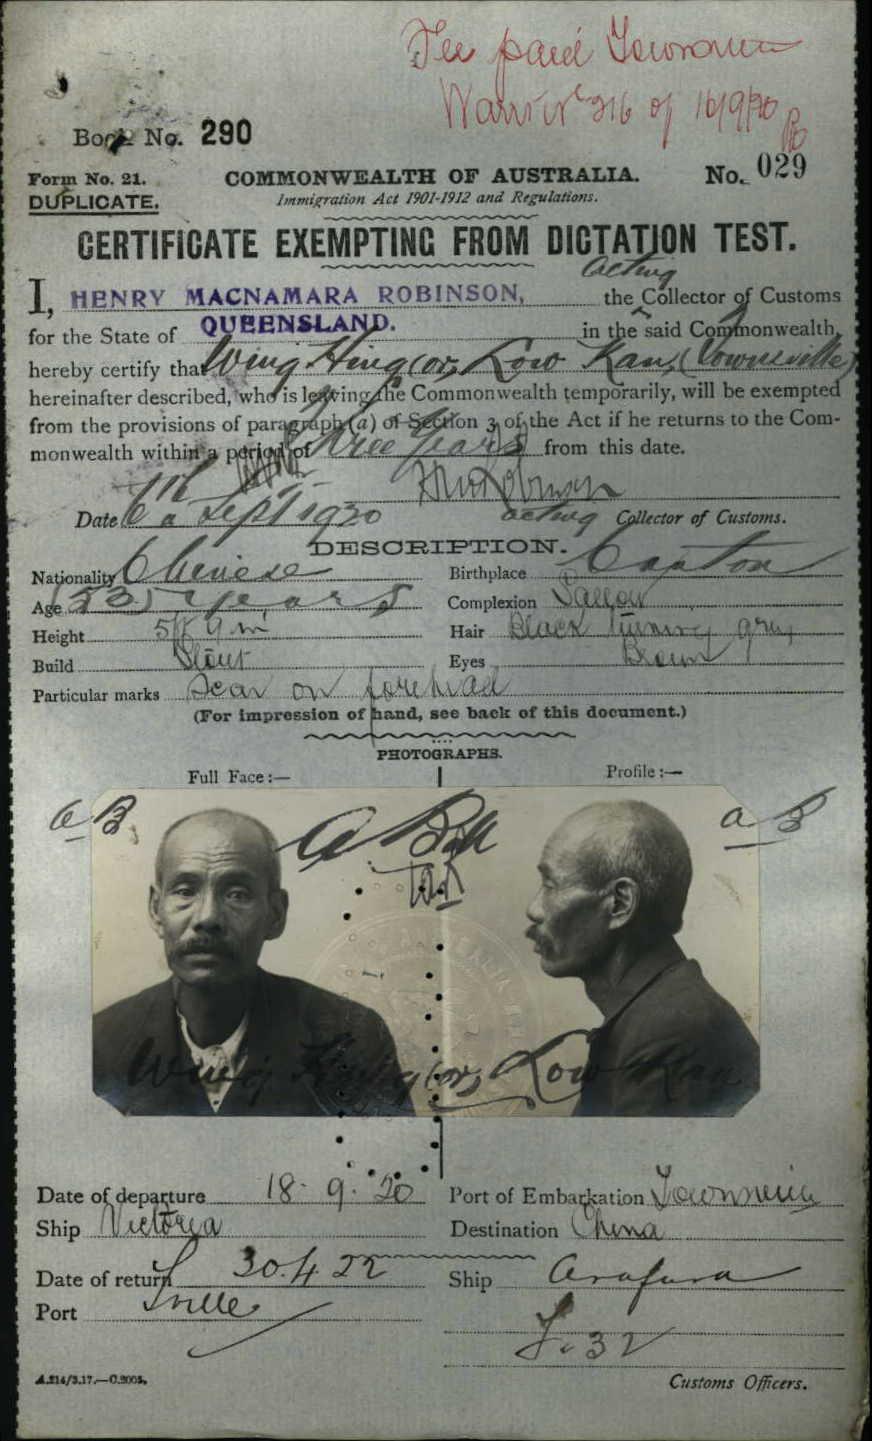 Fee paid Townsville
Warrt No 216 of 16/9/20
Book No. 290
Form No. 21. COMMONWEALTH OF AUSTRALIA. No. 029
DUPLICATE. Immigration Act 1901-1912 and Regulations.
CERTIFICATE EXEMPTING FROM DICTATION TEST.
acting
I, HENRY MACNAMARA ROBINSON, the Collector of Customs
for the State of QUEENSLAND. in the said Commonwealth,
hereby certify that Wing Hing (or, Low Kan, (Townsville)
hereinafter described, who is leaving the Commonwealth temporarily, will be exempted
from the provisions of paragraph (a) of Section 3 of the Act if he returns to the Com-
monwealth within a period of Three Years from this date.
HMRobinson
Date 6th Sept 1920 acting Collector of Customs.
DESCRIPTION.
Nationality Chinese Birthplace Canton
Age (53) years Complexion Sallow
Height 5ft 9in Hair Black turning grey
Build Stout Eyes Brown
Particular marks Scar on forehead
(For impression of hand, see back of this document.)
PHOTOGRAPHS.
Full Face:— Profile:—
a B A Bell a B
Wing Hing (or, Low Kan
Date of departure 18. 9. 20 Port of Embarkation Townsville
Ship Victoria Destination China
Date of return 30.4.22 Ship Arafura
Port Tville
Customs Officers.
A.214/3.17.—C.2005.